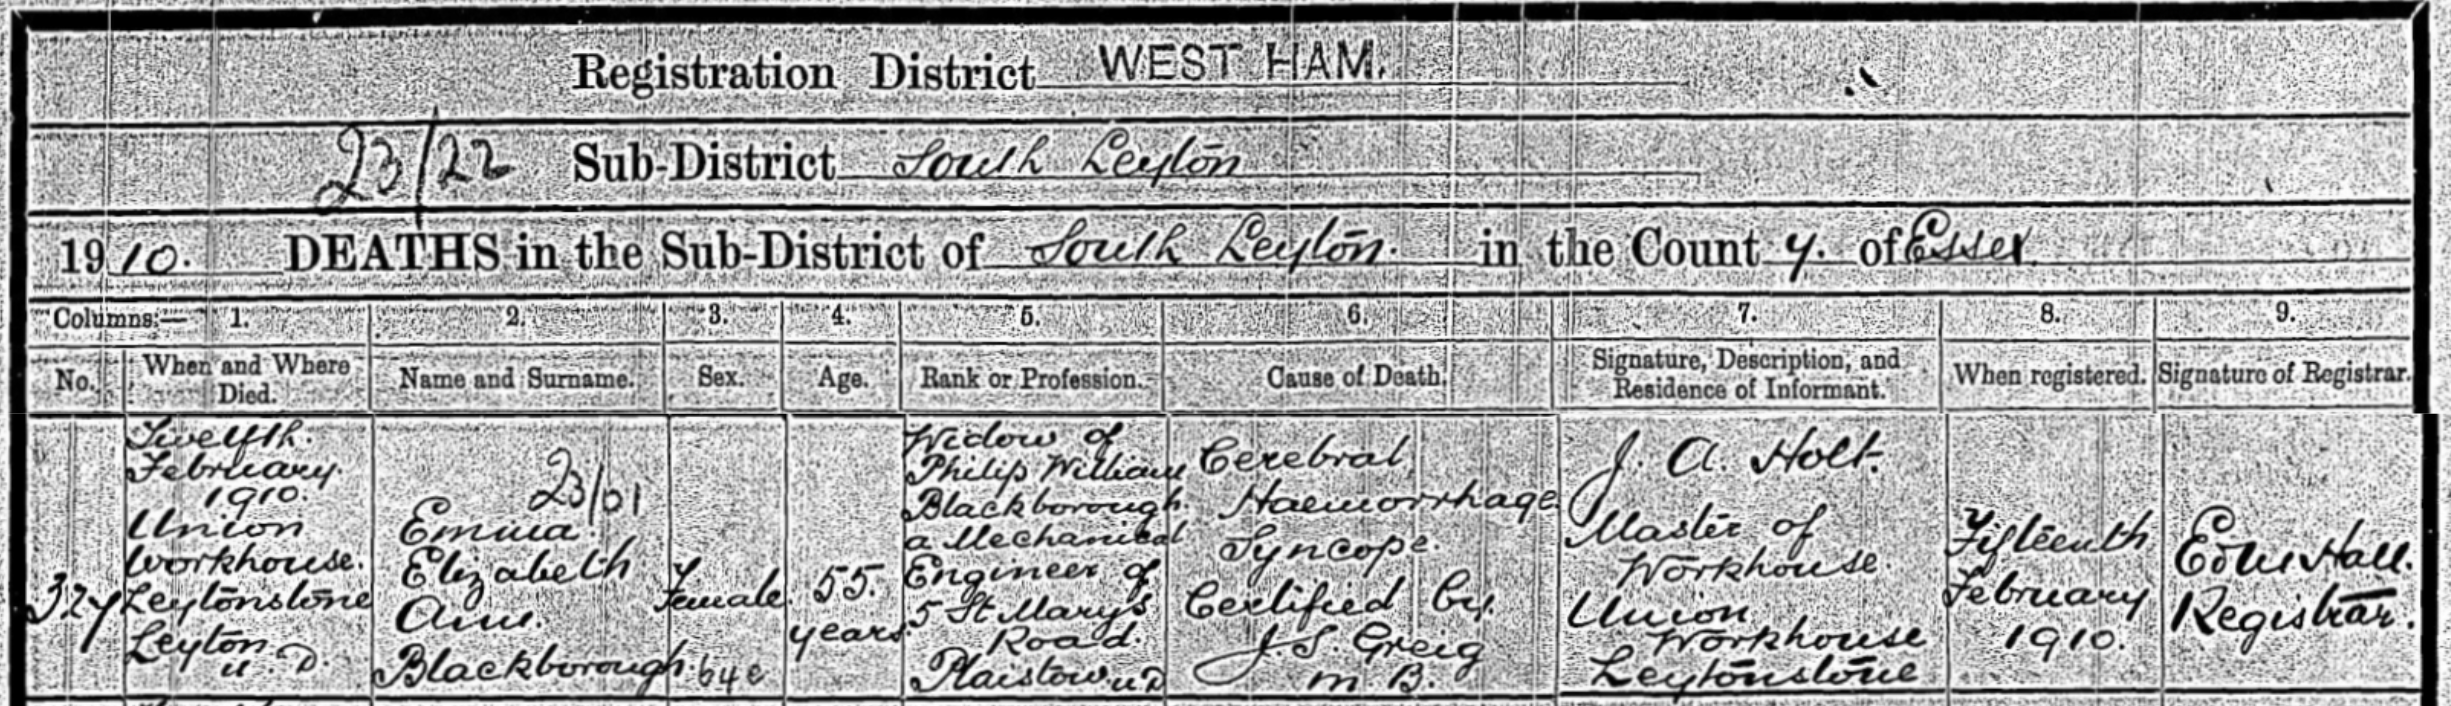 Registration District WEST HAM.
23/22 Sub-District South Leyton
1910. DEATHS in the Sub-District of South Leyton. in the County. of Essex.
Columns:— 1. 2. 3. 4. 5. 6. 7. 8. 9.
No. When and Where Died. Name and Surname. Sex. Age. Rank or Profession. Cause of Death. Signature, Description, and Residence of Informant. When registered. Signature of Registrar.
327
Twelfth.
February.
1910.
Union
Workhouse.
Leytonstone
Leyton
U.D.
23/01
Emma
Elizabeth
Ann.
Blackborough.
Female.
64e
55.
years.
Widow of
Philip William
Blackborough.
a Mechanical
Engineer of
5 St Mary's
Road.
Plaistow U D
Cerebral
Haemorrhage
Syncope.
Certified by.
J. S. Greig
M. B.
J. A. Holt.
Master of
Workhouse.
Union
Workhouse
Leytonstone
Fifteenth
February
1910.
Hall.
Registrar.